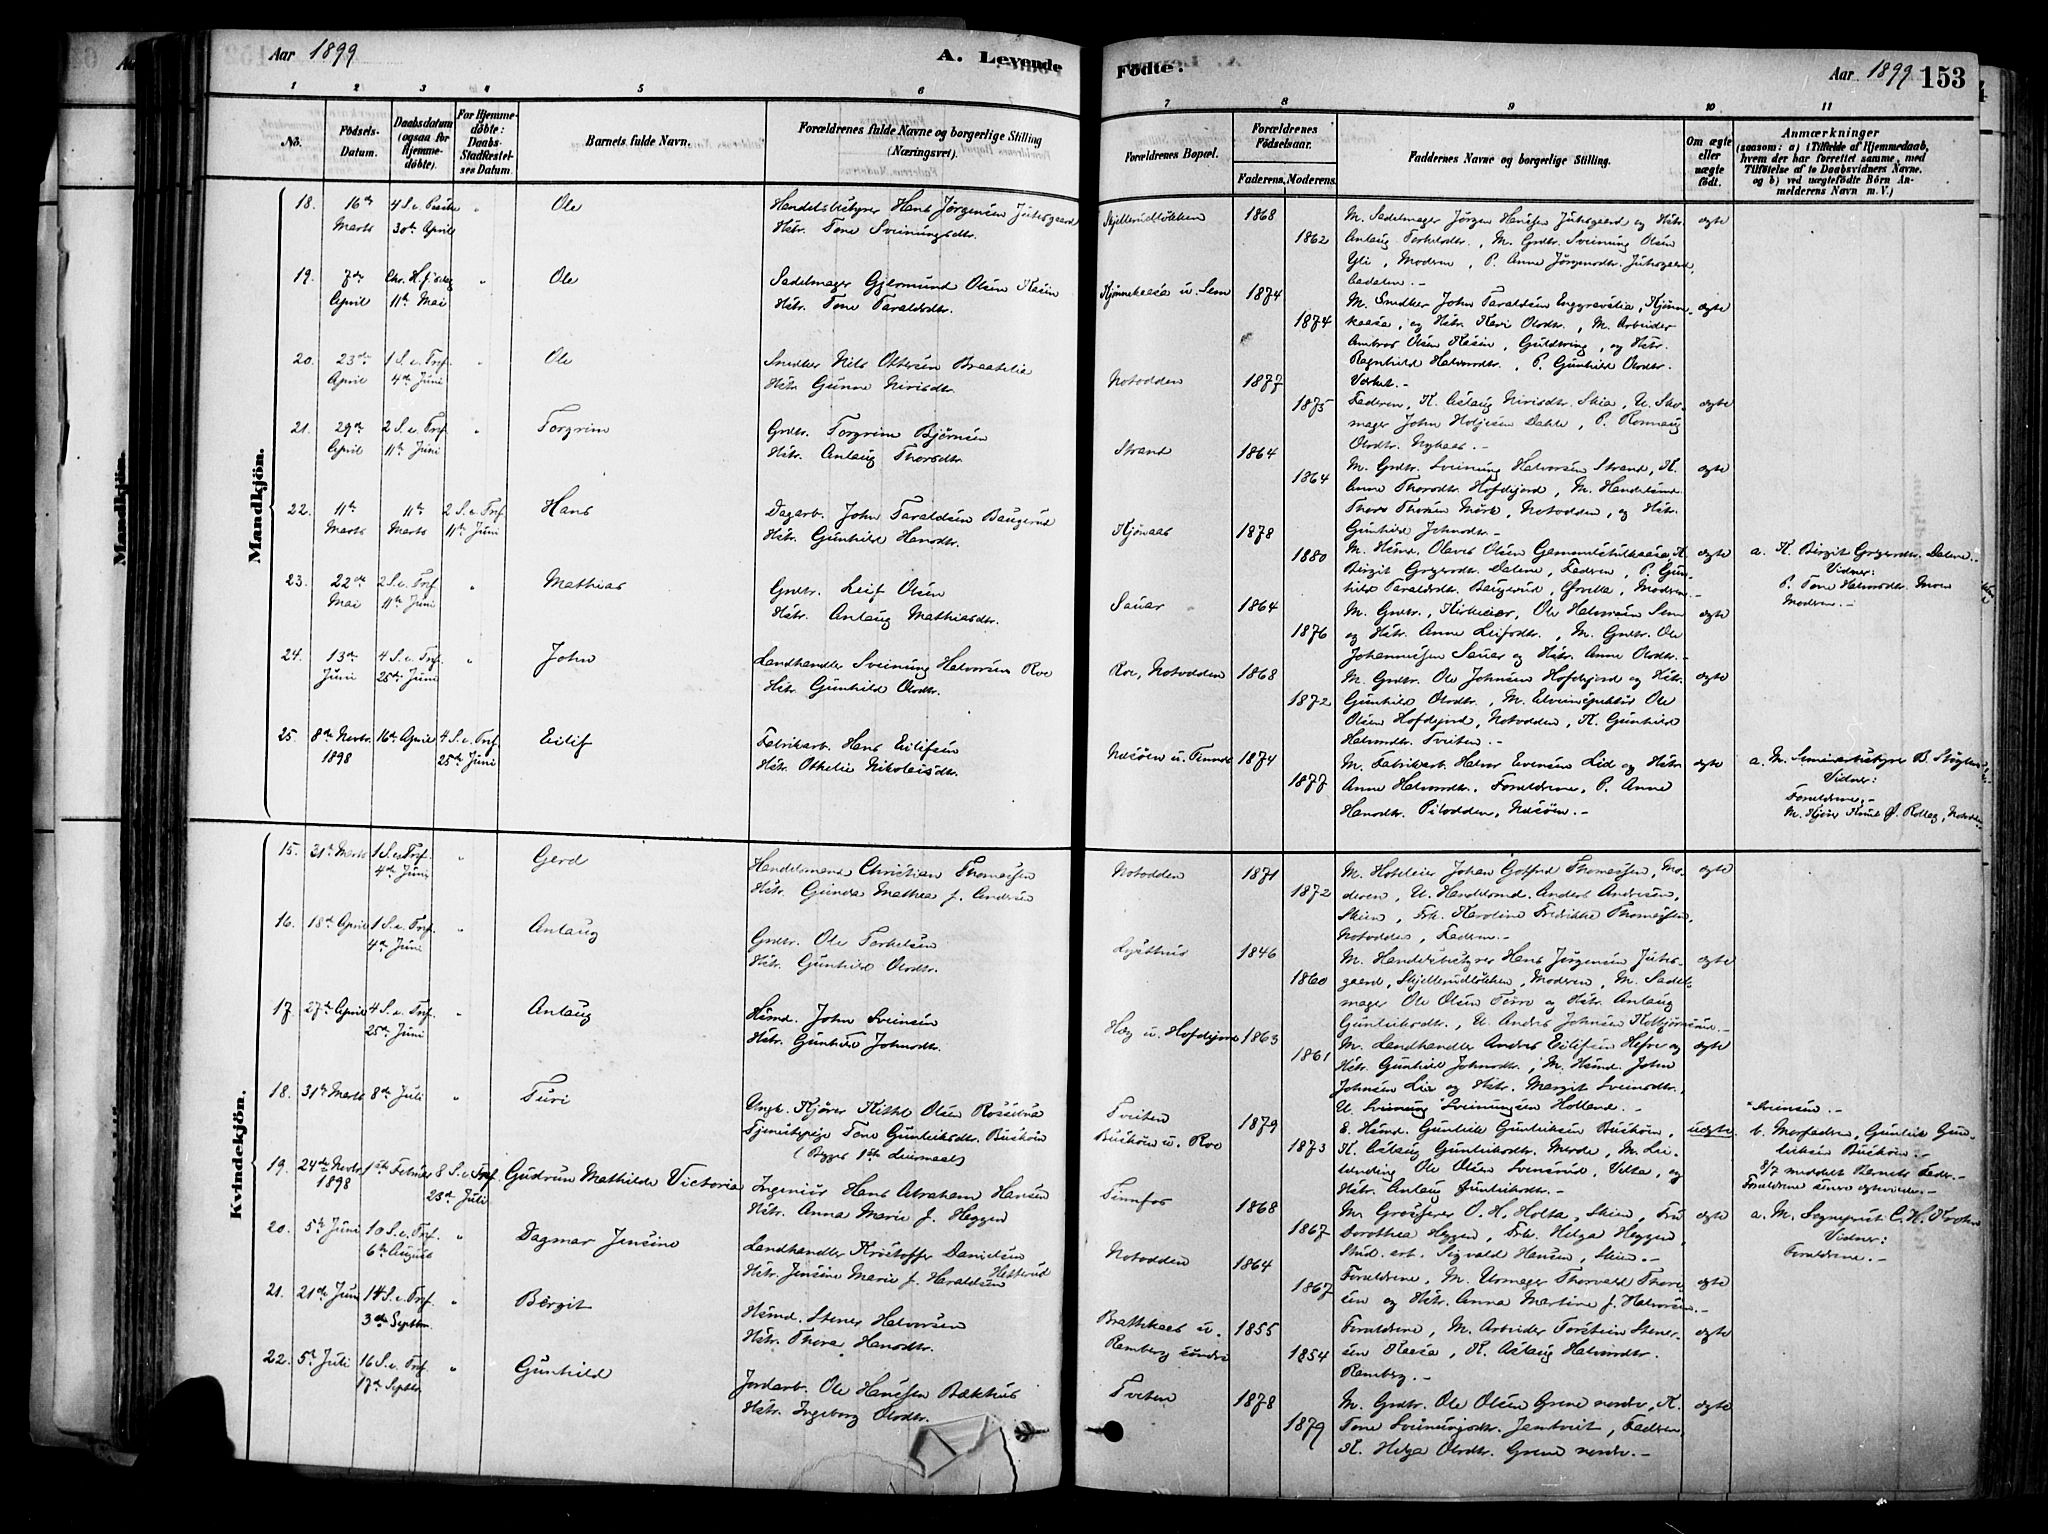 Aar 1899
A. Levende
Födte.
Aar 1899
153
1 2 3 4 5 6 7 8 9 10 11
No.
Födsels-Datum.
Daabsdatum (ogsaa for Hjemmedöbte).
For Hjemmedöbte: Daabs-Stadfæstelses Datum.
Barnets fulde Navn.
Forældrenes fulde Navne og borgerlige Stilling (Næringsvei).
Forældrenes Bopæl.
Forældrenes Födselsaar.
Faderens. Moderens.
Faddernes Navne og borgerlige Stilling.
Om ægte eller uægte födt.
Anmærkninger
(saasom: a) i Tilfælde af Hjemmedaab, hvem der har forrettet samme, med Tilföielse af to Daabsvidners Navne, og b) ved uægtefödte Börn Anmelderens Navn m. V.)
Mandkjön.
18. 16de Marts 4 S. e. Paaske 30te April " Ole
Handelsbestyrer Hans Jørgensen Jutesgaard
Hstr. Tone Sveinungsdtr.
Skjellerudløkken 1868 1862
M. Sadelmager Jørgen Hansen Jutesgaard og Hstr.
Anlaug Torkelsdtr., M. Grdbr. Sveinung Olsen
Yli, Moderen, P. Anne Jørgensdtr. Jutesgaard,
ægte
19. 7de April Chr. H.f.dag 11te Mai " Ole
Sadelmager Gjermund Olsen Kasin
Hstr. Tone Taraldsdtr.
Kjønnekaasa u. Sem 1874 1874
M. Snedker John Taraldsen Enggravslia, Kjønne-
kaasa, og Hstr. Kari Olsdtr., M. Arbeider
Ambros Olsen Kasin, Guldsving, og Hstr.
Ragnhild Halvorsdtr., P. Gunhild Olsdtr.
Verket.-
ægte
20. 23de April 1 S. e. Tref. 4de Juni " Ole
Snedker Nils Ottersen Braatelie
Hstr. Gunne Nirisdtr.
Notodden 1877 1875
Faderen, K. Aslaug Nirisdtr. Skia, U. Sko-
mager John Holjesen Dahle, P. Rønnaug
Olsdtr. Nykaas.-
ægte
21. 29de April 2 S. e. Tref. 11te Juni " Torgrim
Grdbr. Torgrim Bjørnsen
Hstr. Anlaug Thorsdtr.
Strand 1864 1864
M. Grdbr. Sveinung Halvorsen Strand, K.
Anne Thorsdtr. Hofdejord, M. Handelsmd.
Thors Thorsen Mørk, Notodden, og Hstr.
Gunhild Johnsdtr.-
ægte
22. 11te Marts 11te Marts 2 S. e. Tref. 11te Juni Hans
Dagarb. John Taraldsen Baugerud
Hstr. Gunhild Hansdtr.
Kjønaas 1878 1880
M. Hsmd. Olavus Olsen Gammelskulkaasa, K.
Birgit Gregersdtr. Dalene, Faderen, P. Gun-
hild Taraldsdtr. Baugerud, Ørvella, Moderen.-
ægte
a. K. Birgit Gregersdtr. Dalene.-
Vidner:
P. Tone Halvorsdtr. Moen
Moderen.-
23. 22de Mai 2 S. e. Tref. 11te Juni " Mathias
Grdbr. Leif Olsen
Hstr. Anlaug Mathiasdtr.
Sauar 1864 1876
M. Grdbr., Kirkeeier, Ole Halvorsen Sem
og Hstr. Anne Leifsdtr., M. Grdbr. Ole
Johannessen Sauar og Hstr. Anne Olsdtr.-
ægte
24. 13de Juni 4 S. e. Tref. 25de Juni " John
Landhandler Sveinung Halvorsen Roe
Hstr. Gunhild Olsdtr.
Roe, Notodden 1868 1872
M. Grdbr. Ole Johnsen Hofdejord og Hstr.
Gunhild Olsdtr., M. Elveinspektør Ole
Olsen Hofdejord, Notodden, K. Gunhild
Halvorsdtr. Tveiten.-
ægte
25. 8de Novbr. 1898 16de April 4 S. e. Tref. 25de Juni Eilif
Fabrikarb. Hans Eilifsen
Hstr. Othelie Nikolaisdtr.
Næsøen u. Tinnes 1874 1877
M. Fabrikarb. Halvor Evensen Lid og Hstr.
Anne Halvorsdtr., Forældrene, P. Anne
Hansdtr. Pilodden, Næsøen.-
ægte
a. M. Seminariebestyrer B.
Vidner:
Forældrene,-
M. Kjører Knut Ø. Rollag, Notodden
Kvindekjön.
15. 21de Marts 1 S. e. Tref. 4de Juni " Gerd
Handelsmand Christian Thomassen
Hstr. Gunda Mathea f. Andersen
Notodden 1871 1872
M. Hoteleier Johan Gotfred Thomassen, Mo-
deren, U. Handelsmd. Anders Andersen,
Skien, Frk. Karoline Fredrikke Thomassen,
Notodden, Faderen.-
ægte
16. 18de April 1 S. e. Tref. 4de Juni " Anlaug
Grdbr. Ole Torkelsen
Hstr. Gunhild Olsdtr.
Lysthus 1846 1860
M. Handelsbestyrer Hans Jørgensen Jutes-
gaard, Skjellerudløkken, Moderen, M. Sadel-
mager Ole Olsen Torve og Hstr. Anlaug
Gunleiksdtr., U. Anders Johnsen Kolbjørnsrud.-
ægte
17. 27de April 4 S. e. Tref. 25de Juni " Anlaug
Hsmd. John Sveinsen
Hstr. Gunhild Johnsdtr.
Hæg u. Hofdejord 1863 1861
M. Landhandler Anders Eilifsen Hefre og
Hstr. Gunhild Johnsdtr., M. Hsmd. John
Johnsen Lia og Hstr. Margit Sveinsdtr.,
U. Sveinung "Sveinungsen Holland.-
ægte
"Sveinsen.-
18. 31te Marts 8de Juli " Turi
Ungk. Kjører Kittil Olsen Rossebø
Tjenestepige Tone Gunleiksdtr. Buskøen
(Begges 1ste Leiermaal)
Tveiten
Buskøen u. Roe 1879 1873
E. Hsmd. Gunleik Gunleiksen Buskøen,
K. Aslaug Gunleiksdtr. Merde, M. Læ-
lænding Ole Olsen Svensrud, Velta, og
Hstr. Anlaug Gunleiksdtr.-
uægte
b. Morfaderen, Gunleik Gun-
leiksen Buskøen.-
3/7 meddelt Barnets Fader.-
Forældrene senere ægteviede.-
19. 24de Novbr. 1898 1ste Februar 8 S. e. Tref. 23de Juli Gudrun Mathilde Victoria
Ingeniør Hans Abraham Hansen
Hstr. Anna Marie f. Heggen
Tinnfos 1868 1867
M. Grosserer O. H. Holta, Skien, Fru
Dorothea Heggen, Frk. Helga Heggen,
Stud. art. Sigvald Hansen, Skien.-
ægte
a. M. Sogneprest C. H.
Vidner:
Forældrene.-
20. 5te Juni 10 S. e. Tref. 6te August " Dagmar Jensine
Landhandler Kristoffer Danielsen Hesterud
Hstr. Jensine Marie f. Haraldsen
Notodden 1864 1867
Forældrene, M. Urmager Thorvald Thor-
sen og Hstr. Anna Martine f. Halvorsen.-
ægte
21. 21de Juni 14 S. e. Tref. 3de Septbr. " Birgit
Hsmd. Stener Halvorsen
Hstr. Thora Hansdtr.
Bratkaas u. Ramberg søndre 1855 1854
Forældrene, M. Arbeider Torstein Stener-
sen Kaasa, K. Aslaug Halvorsdtr.
Ramberg.-
ægte
22. 5te Juli 16 S. e. Tref. 17de Septbr. " Gunhild
Jordarb. Ole Hansen Bækhus
Hstr. Ingeborg Olsdtr.
Tveiten 1878 1879
M. Grdbr. Ole Olsen Grene nordre, K.
Tone Sveinungsdtr. Jamtveit, Faderen,
K. Helga Olsdtr. Grene nordre.-
ægte